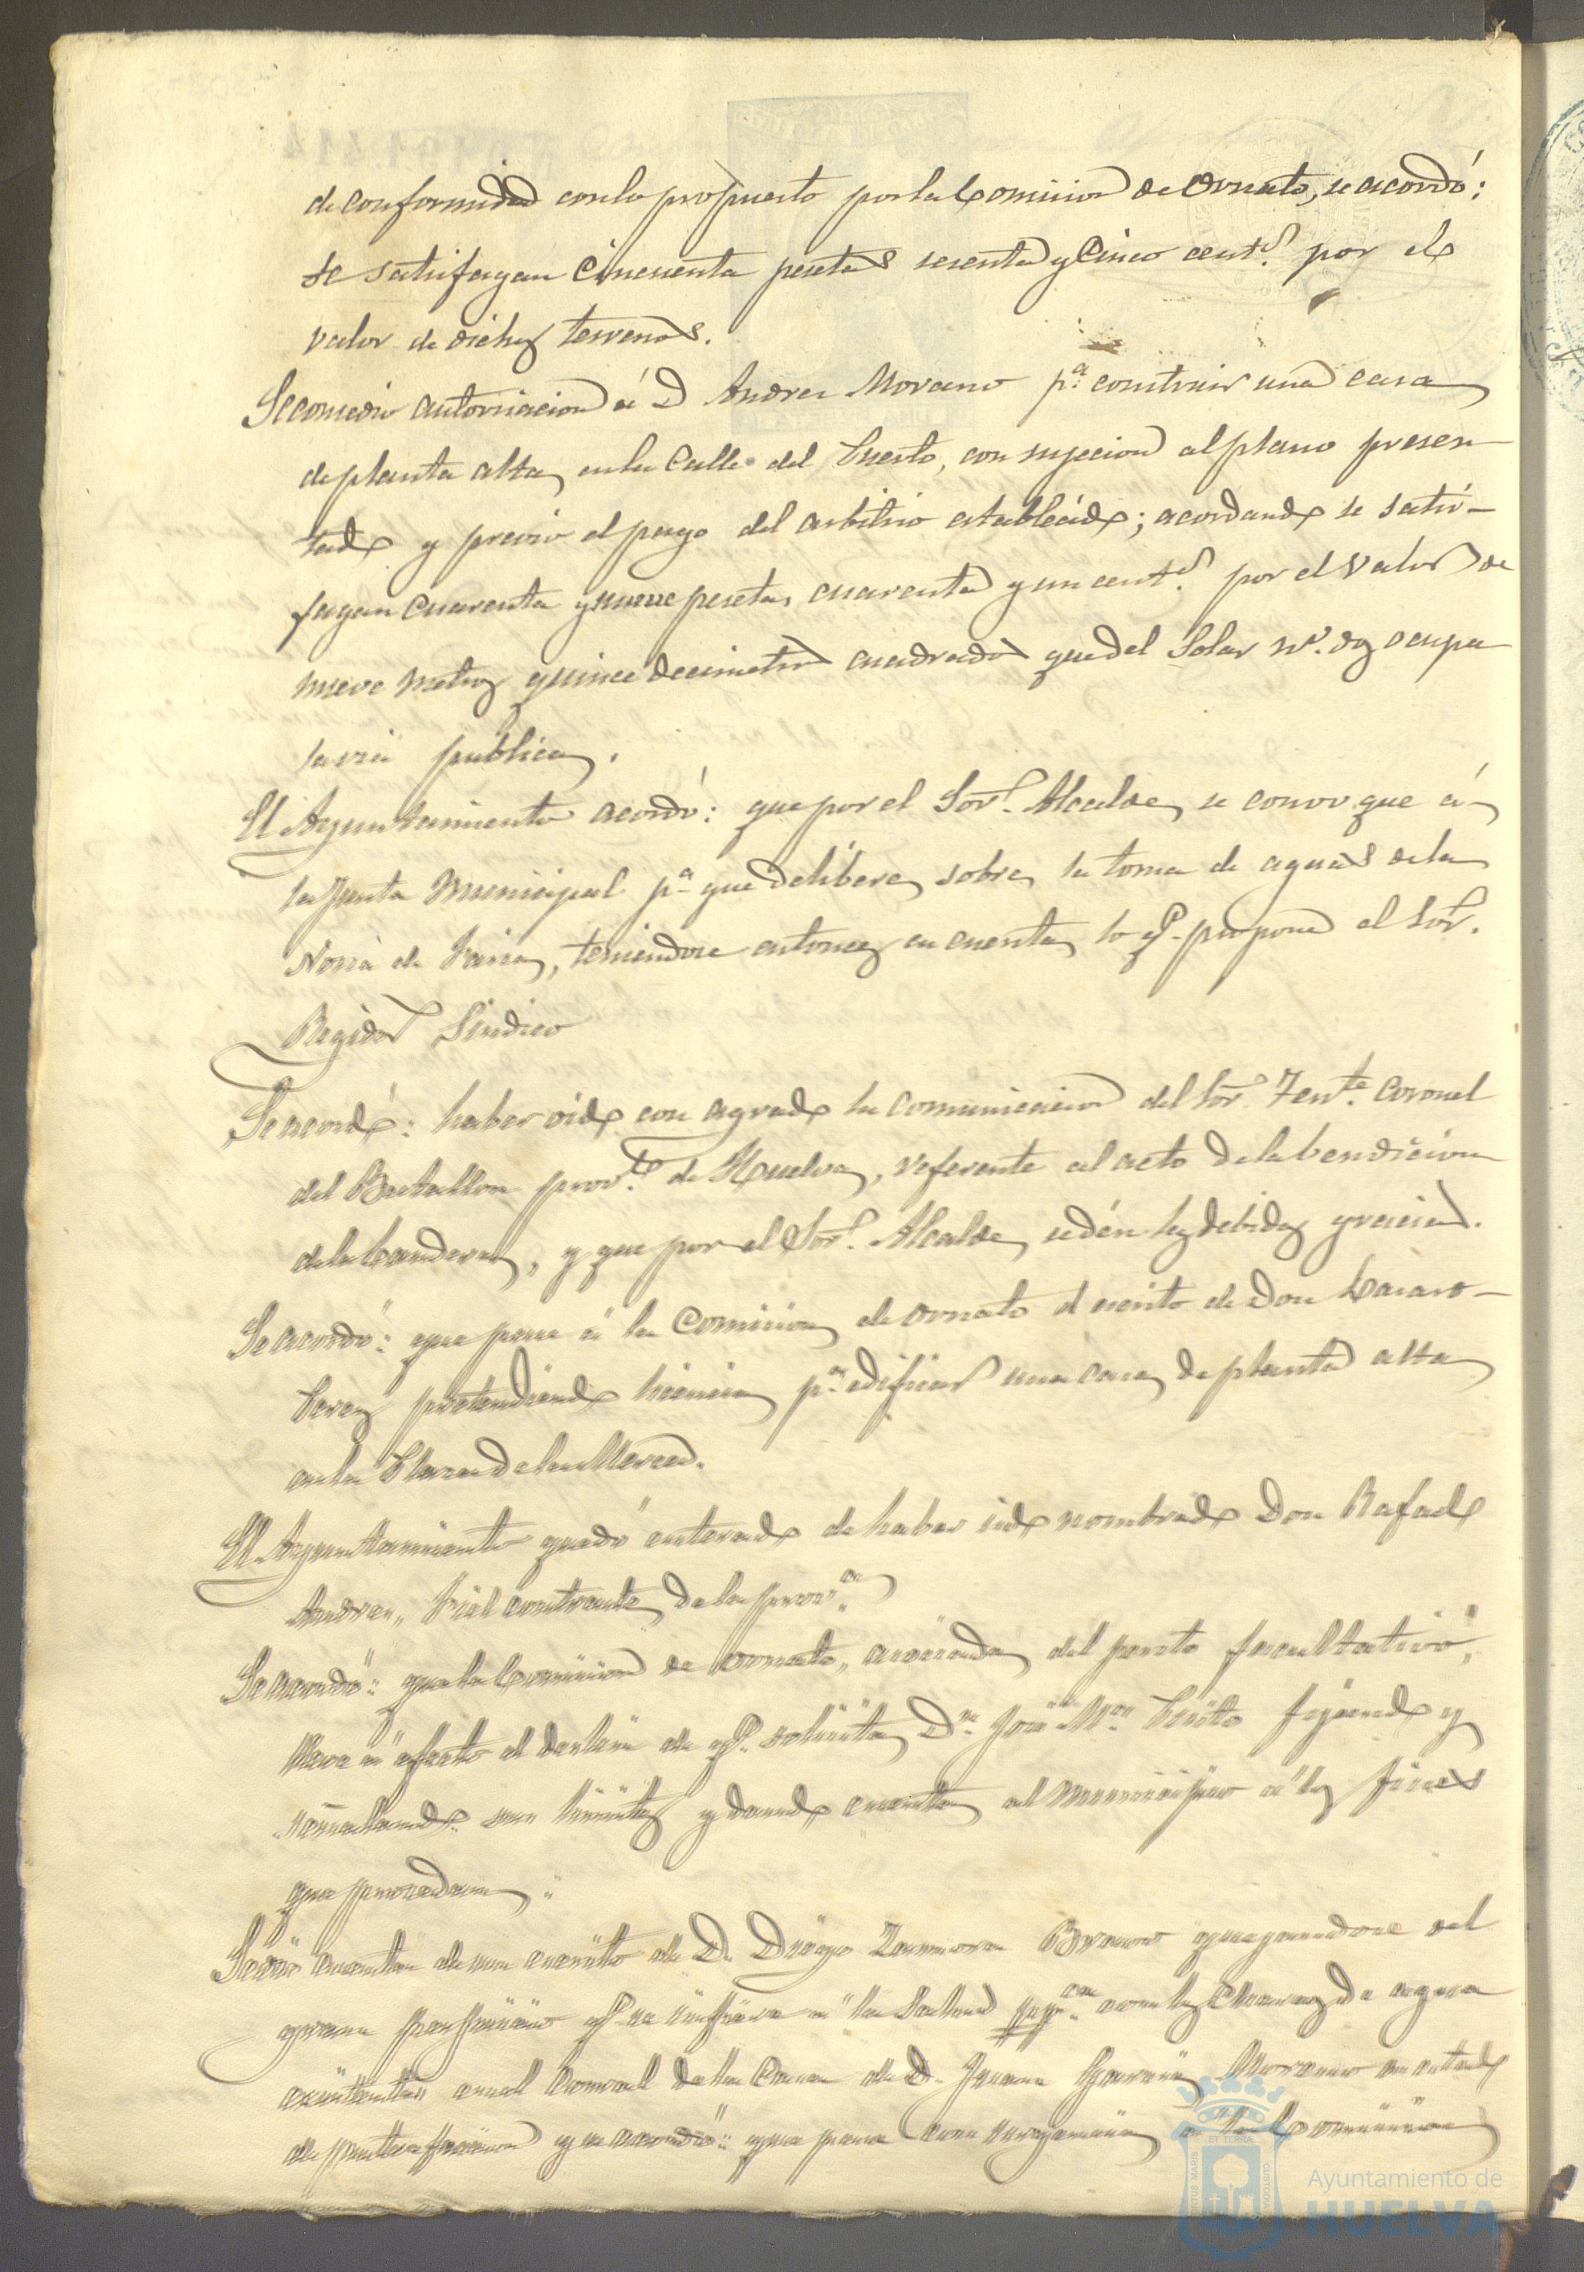 de conformidad con lo propuesto por la Comision de Ornato, se acordó:
se satisfagan cincuenta pesetas sesenta y cinco cent.s por el
valor de dichos terrenos.
Se concedio autorizacion á D Andres Morano p.a construir una casa
de planta alta en la Calle del Puerto, con sujecion al plano presen-
tado y previo el pago del arbitrio establecido; acordando se satis-
fagan cuarenta y nueve pesetas cuarenta y un cent.s por el valor de
nueve metros quince decimetros cuadrados que del Solar nº. dos ocupa
la via publica.
El Ayuntamiento acordó: que por el Sor. Alcalde se convoque á
la Junta Municipal p.a que delibere sobre la toma de aguas de la
Noria de , teniendose entonces en cuenta lo q. propone el Sor.
Regidor Sindico
Se acordó: haber oido con agrado la comunicacion del Sor. Ten.te Coronel
del Batallon prov.l de Huelva, referente al acto de la bendicion
de la bandera, y que por el Sor. Alcalde se dén las debidas gracias.
Se acordó: que pase á la Comision de ornato el escrito de Don Lazaro
Perez pretendiendo licencia p.a edificar una casa de planta alta
en la Plaza de la Merced.
El Ayuntamiento quedó enterado de haber sido nombrado Don Rafael
Andreu, Fiel contraste de la prov.a
Se acordó: que la Comision de ornato, asociada del perito facultativo,
lleve á efecto el deslinde q. solicita D.n José M.a fijando y
señalando sus limites y dando cuenta al Municipio á los fines
que procedan.
Se dió cuenta de un escrito de D. Diego Zamora Bravo quejandose del
grave perjuicio q. se infiere á la Salud pp.ca con las Charcas de agua
existentes en el Corral de la Casa de D. Juan Garcia Morano en estado
de putrefaccion y se acordó: que pase con urgencia á la Comision
Ayuntamiento de
HUELVA